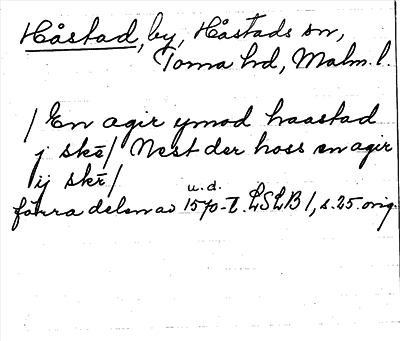 Håstad, by, Håstads sn,
Torna hd, Malm. l.
/ En agir ymod haastad
j skē / Nest der hoss en agir
ij skē /
u.d.
förra delen av 1570-t. LSLB 1, s. 25. orig.